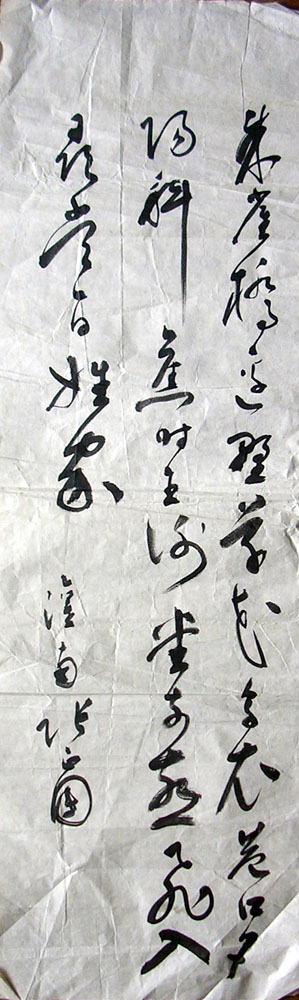 朱雀橋边野草花乌衣巷口夕
陽斜 舊时王谢堂前燕飞入
尋常百姓家 南张